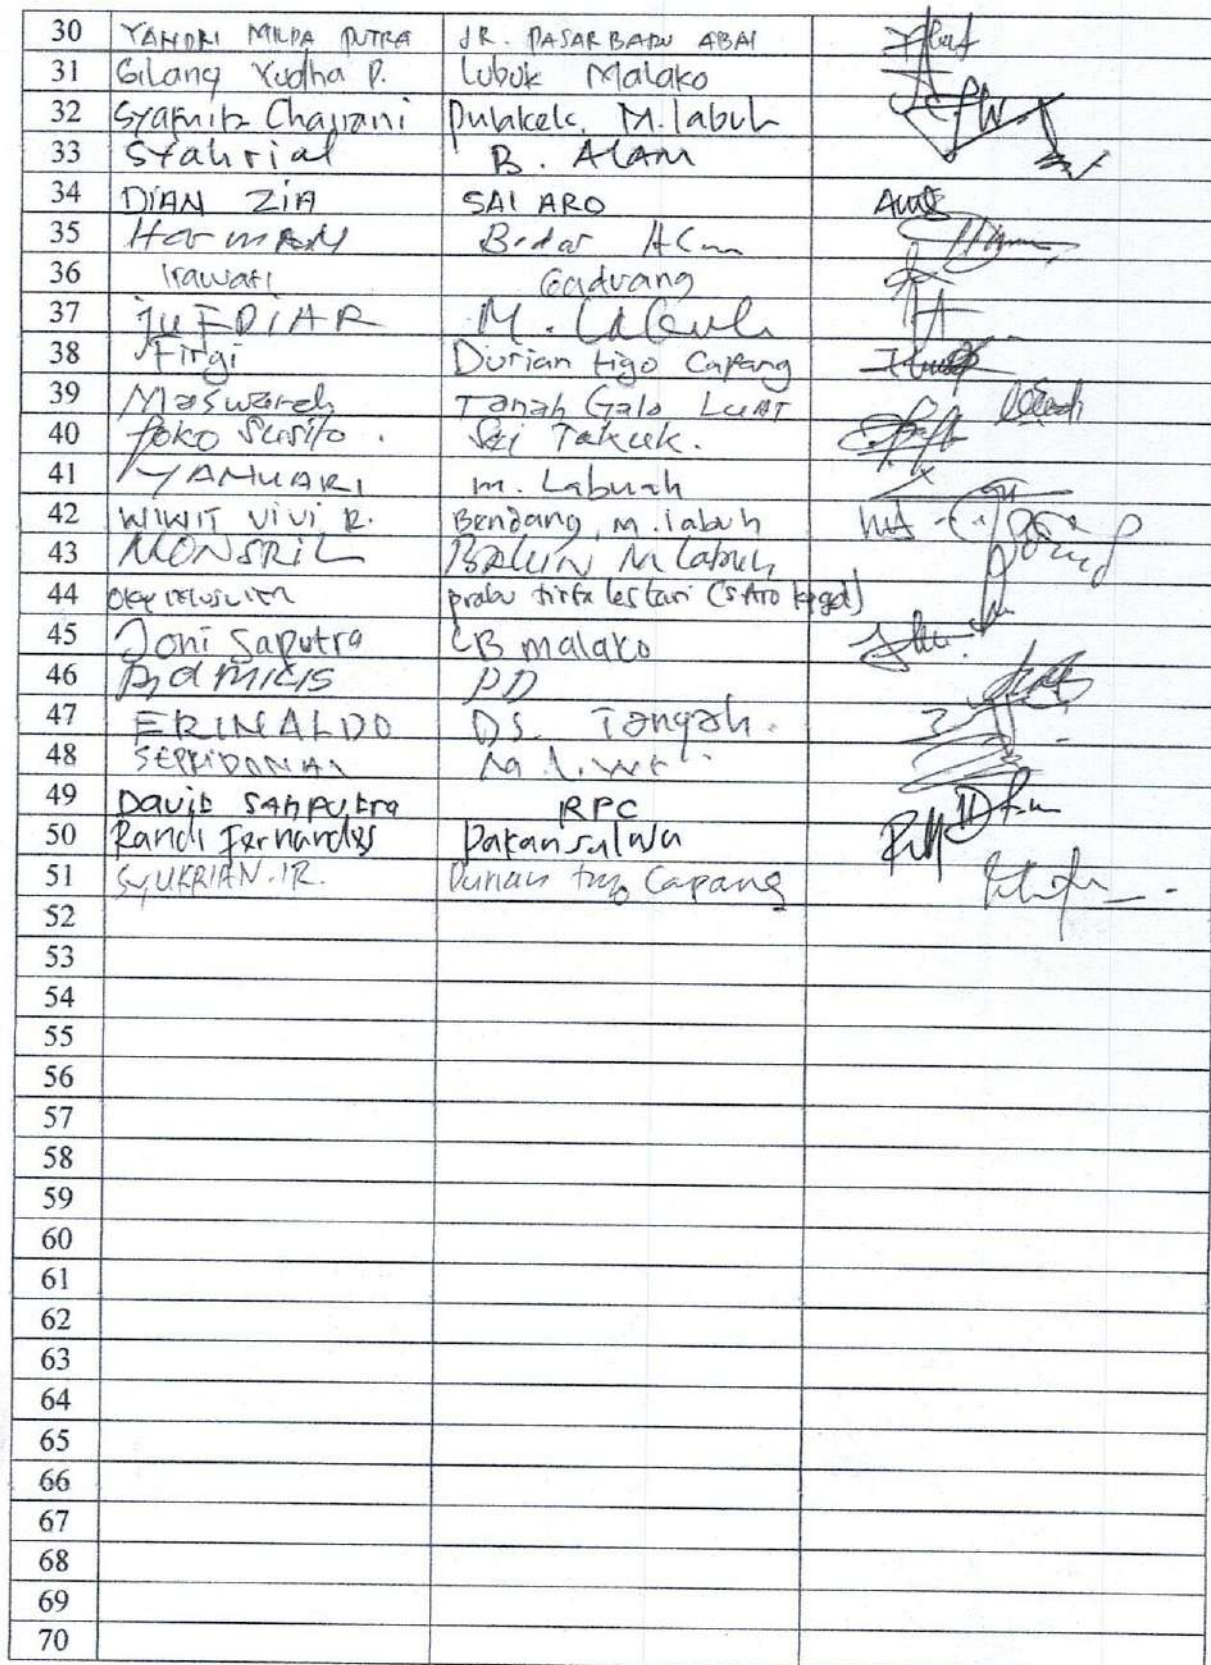 30 YANDRI MILDA PUTRA JR. PASAR BARU ABAI
31 Gilang Yudha P. Lubuk Malako
32 Syafnib Chairani Pulakek, M.labuh
33 Syahrial B. ALAM
34 DIAN ZIA SAI ARO
35 HarmAN Bidar Alam
36 Irawati Gaduang
37 juFDIAR M. Labuh
38 Firgi Durian tigo Capang
39 Maswardi Tanah Galo LuAT
40 Joko Susilo. Sei Takuk.
41 YANUARI m. Labuah
42 WIWIT ViVi R. Bendang, m.labuh
43 MONSRIL BALUN M Labuh
44 prabu tirta lestari (S Aro
45 Joni Saputra LB malako
46 PD
47 ERINALDO DS. Tangah.
48
49 DaviD SAhPUtra RPC
50 Randi Fernandes Pakan salasa
51 SyUKRIAN.IR. Durian tigo Capang
52
53
54
55
56
57
58
59
60
61
62
63
64
65
66
67
68
69
70